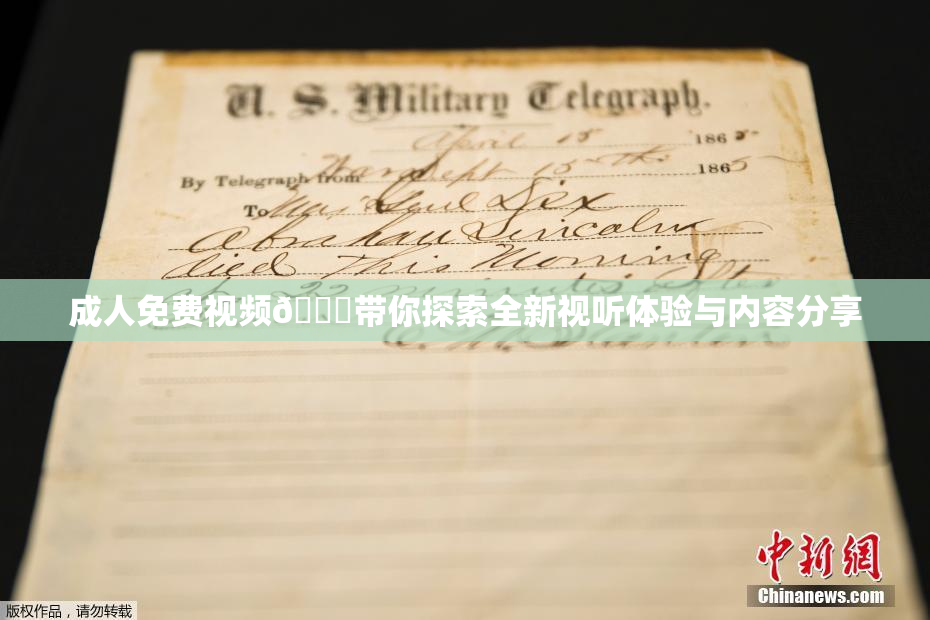 U. S. Military Telegraph.
April 15 1865
By Telegraph from War Dept 15th 1865
To Maj Genl Dix
Abraham Lincoln
died This Morning
22 minutes after
成人免费视频ð带你探索全新视听体验与内容分享
E. M. Stanton
中新网
Chinanews.com
版权作品，请勿转载